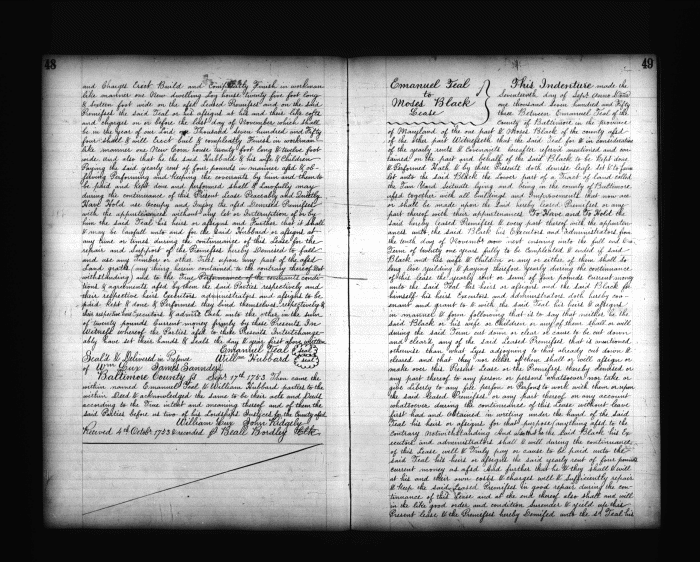 48
and Charges Erect Build and Compleatly Finish in workman
like manner one New dwelling Log house twenty five foot long
& sixteen foot wide on the afsd Leased Premises and on the said
Premises the said Teal his afsigns at his and their like costs
and charges on or before the Last day of November which shall
be in the year of our Lord Thousand seven hundred and Fifty
four shall & will Erect built & Compleatly Finish in workman
like manner one New Corn house twenty foot long & twelve foot
wide and also that he the said Hubbard & his wife & Children
Paying the said yearly rent of four pounds in manner afsd & ob-
serving Performing and Keeping the covenants by him and them to
be paid and Kept done and performed shall & Lawfully may
during the continuance of this Present Lease Peaceably and Quietly
Have Hold use Occupy and Enjoy the afsd Demised Premises
with the appurtenances without any Let or Interruption of or by
him the said Teal his heirs or afsigns and Further that it shall
& may be lawfull unto and for the said Hubbard or afsigns at
any time or times during the continuance of this Lease for the
repair and Support of the Premises hereby Demised to fall
and use any Timber or other Trees upon any part of the afsd
Land gratis (any thing herein contained to the contrary thereof Not
withstanding) and to the True Performance of the covenants condi-
tions & agreements afsd by them the said Parties respectively and
their respective heirs Executors administrators and afsigns to be
paid Kept & done & Performed they bind themselves respectively &
their respective heirs Executors & admrs Each unto the other in the sum
of twenty pounds Current money firmly by these Presents In
Witness whereof the Parties afsd to these Presents Interchange-
ably have set their hands & seals the day & year first above written
Emanuel Teal (seal)
Seal'd & Delivered in Presence Willm Hubbard (seal)
of Wm Cux
Baltimore County ss Sepr 17th 1753 Then came the
within named Emanuel Teal & William Hubbard parties to the
within Deed & acknowledged the same to be their acts and Deed
according to the True intent and meaning thereof and of them the
said Parties before us two of his Lordships Justices for the County afsd
William Cux John Ridgely
Received 4th October 1753 & recorded P Beale Bordley Clk
49
Emanuel Teal
to
Moses Black
Lease
This Indenture made the
Seventeenth day of Sepr Anno
one thousand Seven hundred and Fifty
three Between Emanuel Teal of the
County of Baltimore in the Province
of Maryland of the one part & Moses Black of the County afsd
of the other part Witnesseth that the said Teal for & in consideration
of the yearly rents & Covenants hereafter referred mentioned and con-
tained on the part and behalf of the said Black to be Kept done
& Performed Hath & by these Presents doth demise Lease Set & to farm
Let unto the said Black the part of a Tract of land called
the Tan Yard Situate lying and being in the county of Baltimore
afsd together with all buildings and Improvements that now are
or shall be made upon the Land hereby leased Premises or any
part thereof with their appurtenances To Have and To Hold the
said hereby leased Premises & every part thereof with the appurten-
ances unto the said Black his Executors and Administrators from
the tenth day of November now next ensuing unto the full end &
Term of twenty one years fully to be Compleated & ended if said
Black and his wife & Children or any or either of them shall so
long live yielding & paying therefore yearly during the continuance
of this Lease the yearly rent or sum of four pounds Current money
unto the said Teal his heirs or afsigns and the said Black for
himself his heirs Executors and Administrators doth hereby cov-
enant and grant to & with the said Teal his heirs & afsigns
in manner & form following that is to say that neither he the
said Black or his wife or Children or any of them shall or will
during the said Term cut down or clear or cause to be cut down
and cleard any of the said Leased Premises that is mentioned
otherwise than what Lyes adjoyning to that already cut down &
cleared and that they nor either of them shall or will afsign or
make over this Present Lease or the Premises hereby demised or
any part thereof to any person or persons whatsoever nor take or
give liberty to any person or Persons to work with them or upon
the said Leased Premises or any part thereof on any account
whatsoever during the continuance of this Lease without leave
first had and Obtained in writing under the hand of the said
Teal his heirs or afsigns for that purpose (anything afsd to the
Contrary notwithstanding) And that he the said Black his Ex-
ecutors and administrators shall & will during the continuance
of this Lease well & Truly pay or cause to be paid unto the
said Teal his heirs or afsigns the said yearly rent of four pounds
current money as afsd And further that he & they shall & will
at his and their own costs & charges well & Sufficiently repair
& Keep the said Leased Premises in good repair during the con-
tinuance of this Lease and at the end thereof also shall and will
in the like good order and condition Surender & Yield up this
Present lease & the Premises hereby Demised unto the sd Teal his